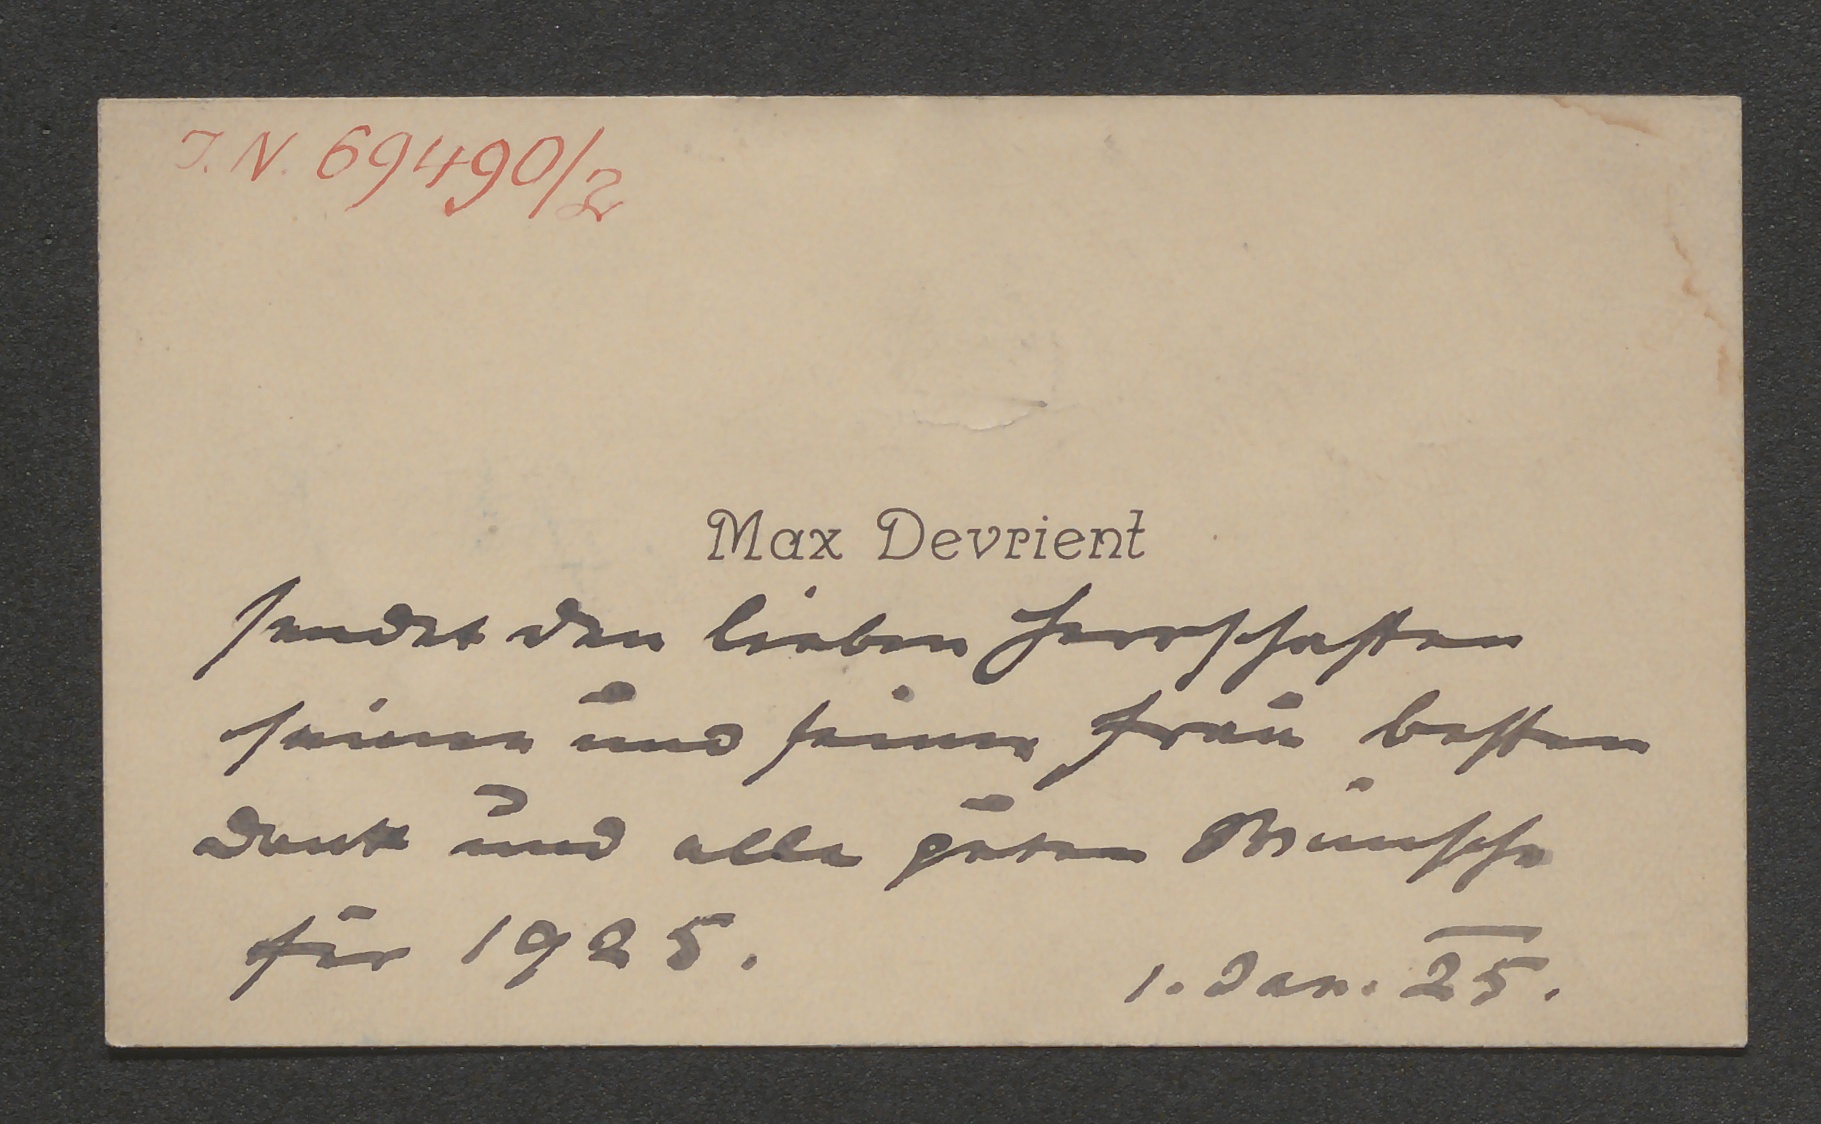 I. N. 69490/2
Max Devrient
sendet den lieben Herrschaften
seinen und seiner Frau besten
Dank und alle guten Wünsche
für 1925.
1. Jan. 25.